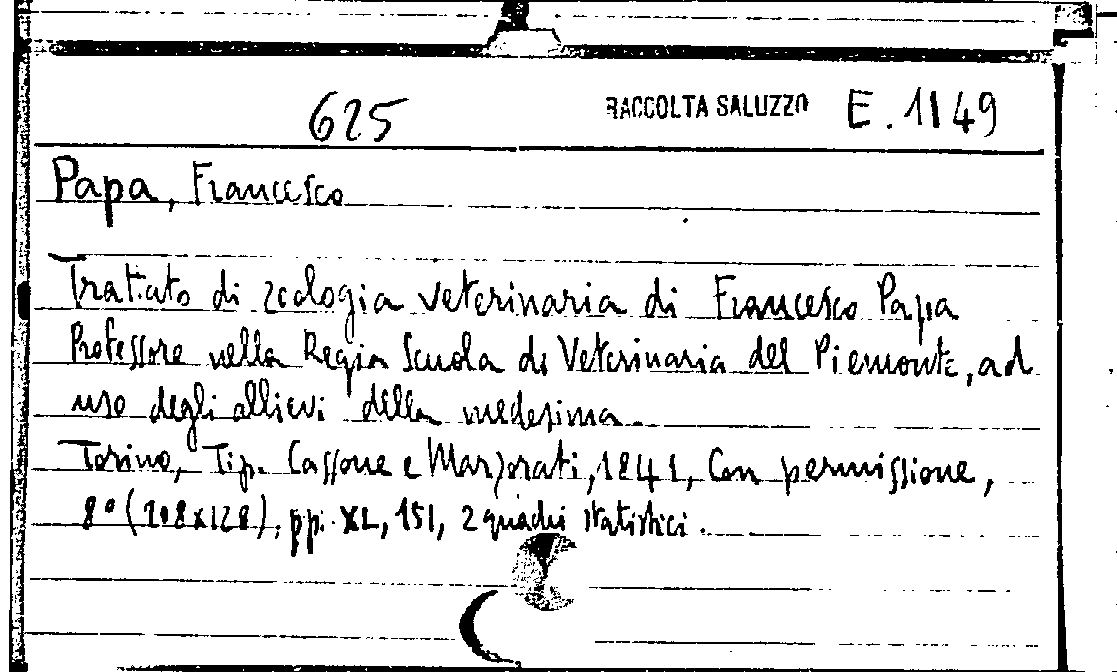 625 RACCOLTA SALUZZO E. 1149
Papa, Francesco
Trattato di zoologia veterinaria di Francesco Papa
Professore nella Regia Scuola di Veterinaria del Piemonte, ad
uso degli allievi della medesima.
Torino, Tip. Cassone e Marzorati, 1841, Con permissione,
8° (208x128), pp. XL, 151, 2 quadri statistici.